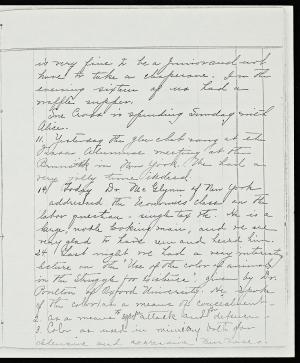 is very fine to be a Junior and not
have to take a chaperone. In the
evening sixteen of us had a
waffle supper.
Sue Cross is spending Sunday with
Alice.
11. Yesterday the glee club sang at the
Vassar Alumnae meeting at the
Brunswick in New York. We had a
very jolly time indeed.
19. Today Dr. McGlynn of New York
addressed the Economics class on the
labor question – single tax etc. He is a
large, noble looking man, and we are
very glad to have seen and heard him.
24. Last night we had a very interesting
lecture on the "Use of the color of animals
in the struggle for existence", given by Dr.
Poulton of Oxford University. He spoke
of the color 1. as a means of concealment –
2. as a means of attack and defense
3. Color as used in mimicry both for
defensive and aggressive purposes.